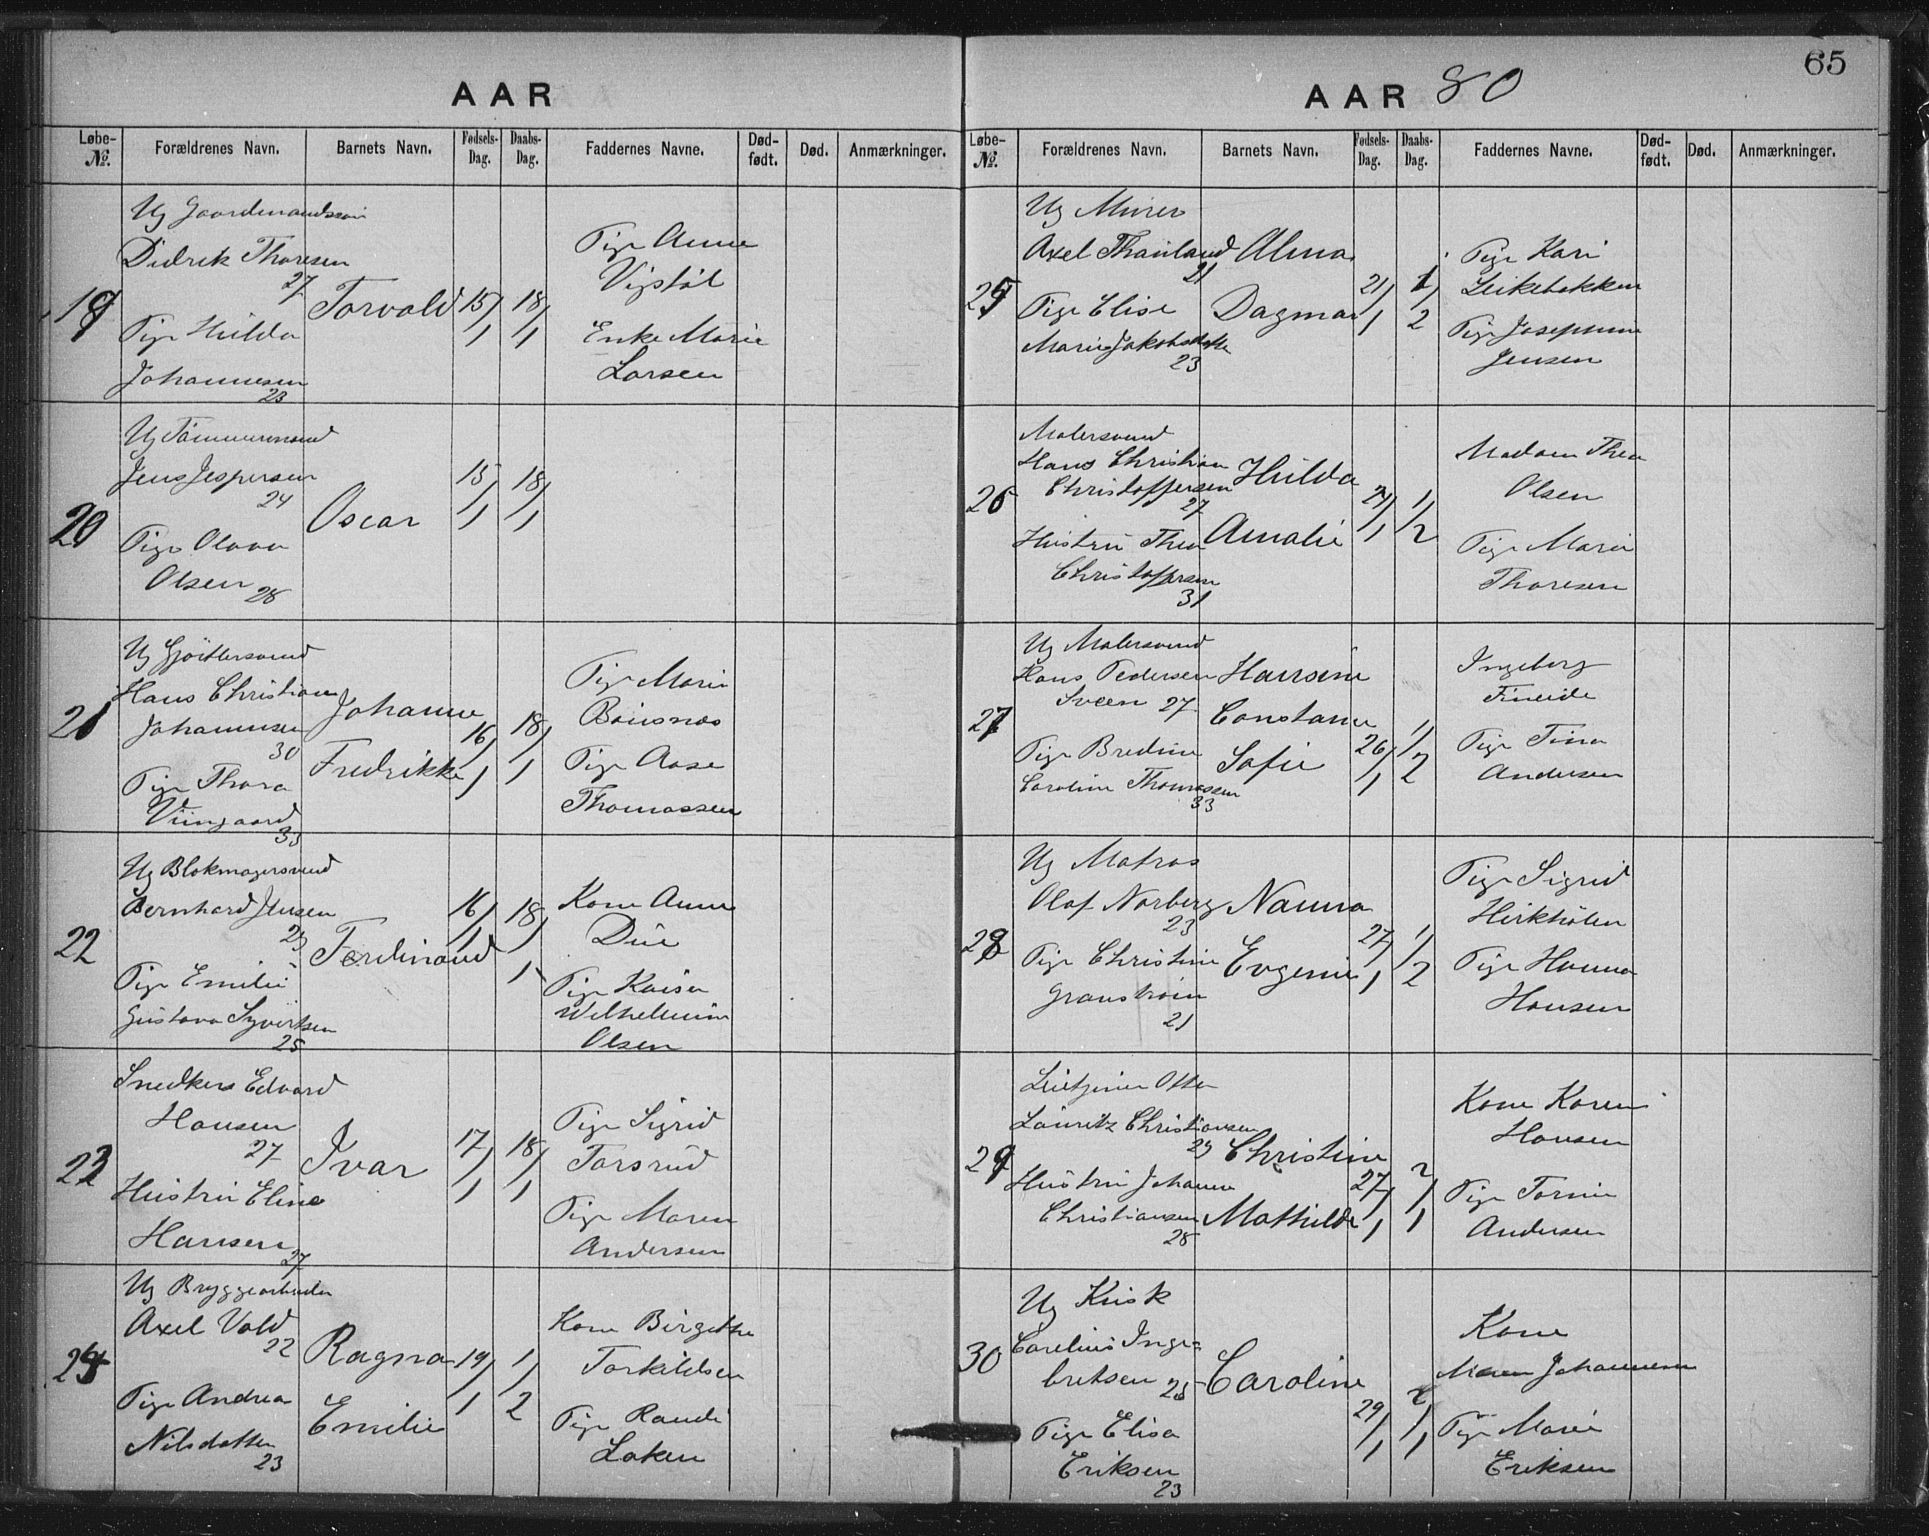 65
AAR
Løbe-No. Forældrenes Navn. Barnets Navn. Fødsels-Dag. Daabs-Dag. Faddernes Navne. Død-født. Død. Anmærkninger.
19
Ug Gaardmandssøn
Didrik Thoresen
27
Pige Hulda
Johannesen
23
Torvald
15/1
18/1
Pige Anne
Vigstøl
Enke Marie
Larsen
20
Ug Tømmermand
Jens Jespersen
24
Pige Olava
Olsen 28
Oscar
15/1
18/1
21
Ug Gjörtlersvend
Hans Christian
Johannesen
30
Pige Thora
Viingaard
33
Johanne
Fredrikke
16/1
18/1
Pige Marie
Pige Aase
Thomassen
22
Ug Blokmagersvend
Bernhard Jensen
23
Pige Emilie
Gustava Syvertsen
25
Ferdinand
16/1
18/1
Kone Anne
Due
Pige Kaisa
Wilhelmine
Olsen
23
Snedkers Edvard
Hansen
27
Hustru Eline
Hansen
27
Ivar
17/1
18/1
Pige Sigrid
Torsrud
Pige Maren
Andersen
24
Ug Bryggearbeider
Axel Vold
22
Pige Andrea
Nilsdatter
23
Ragna
Emilie
19/1
1/2
Kone Birgethe
Torkildsen
Pige Randi
Løken
AAR 80
Løbe-No. Forældrenes Navn. Barnets Navn. Fødsels-Dag. Daabs-Dag. Faddernes Navne. Død-født. Død. Anmærkninger.
25
Ug Murer
Axel Thauland
21
Pige Elise
Marie Jakobsdatter
23
Alma
Dagmar
21/1
1/2
Pige Kari
Leikebakken
Pige Josephine
Jensen
26
Malersvend
Hans Christian
Christoffersen
27
Hustru Thea
Christoffersen
31
Hulda
Amalie
24/1
1/2
Madam Thea
Olsen
Pige Marie
Thoresen
27
Ug Malersvend
Hans Pedersen
Sveen 27
Pige Bredine
Caroline Thomassen
33
Hansine
Constance
Sofie
26/1
1/2
Ingeborg
Fineide
Pige Tina
Andersen
28
Ug Matros
Olaf Norberg
23
Pige Christine
Granstrøm
21
Nanna
Evgenie
27/1
1/2
Pige Sigrid
Hirkhölen
Pige Hanna
Hansen
29
Otto
Lauritz Christiansen
Hustru Johanne
Christiansen
28
Christine
Mathilde
27/1
2/1
Kone Karen
Hansen
Pige Tornie
Andersen
30
Ug Kusk
Carelius Inge-
bretsen 25
Pige Elisa
Eriksen
23
Caroline
29/1
2/1
Kone
Maren Johannesen
Pige Marie
Eriksen